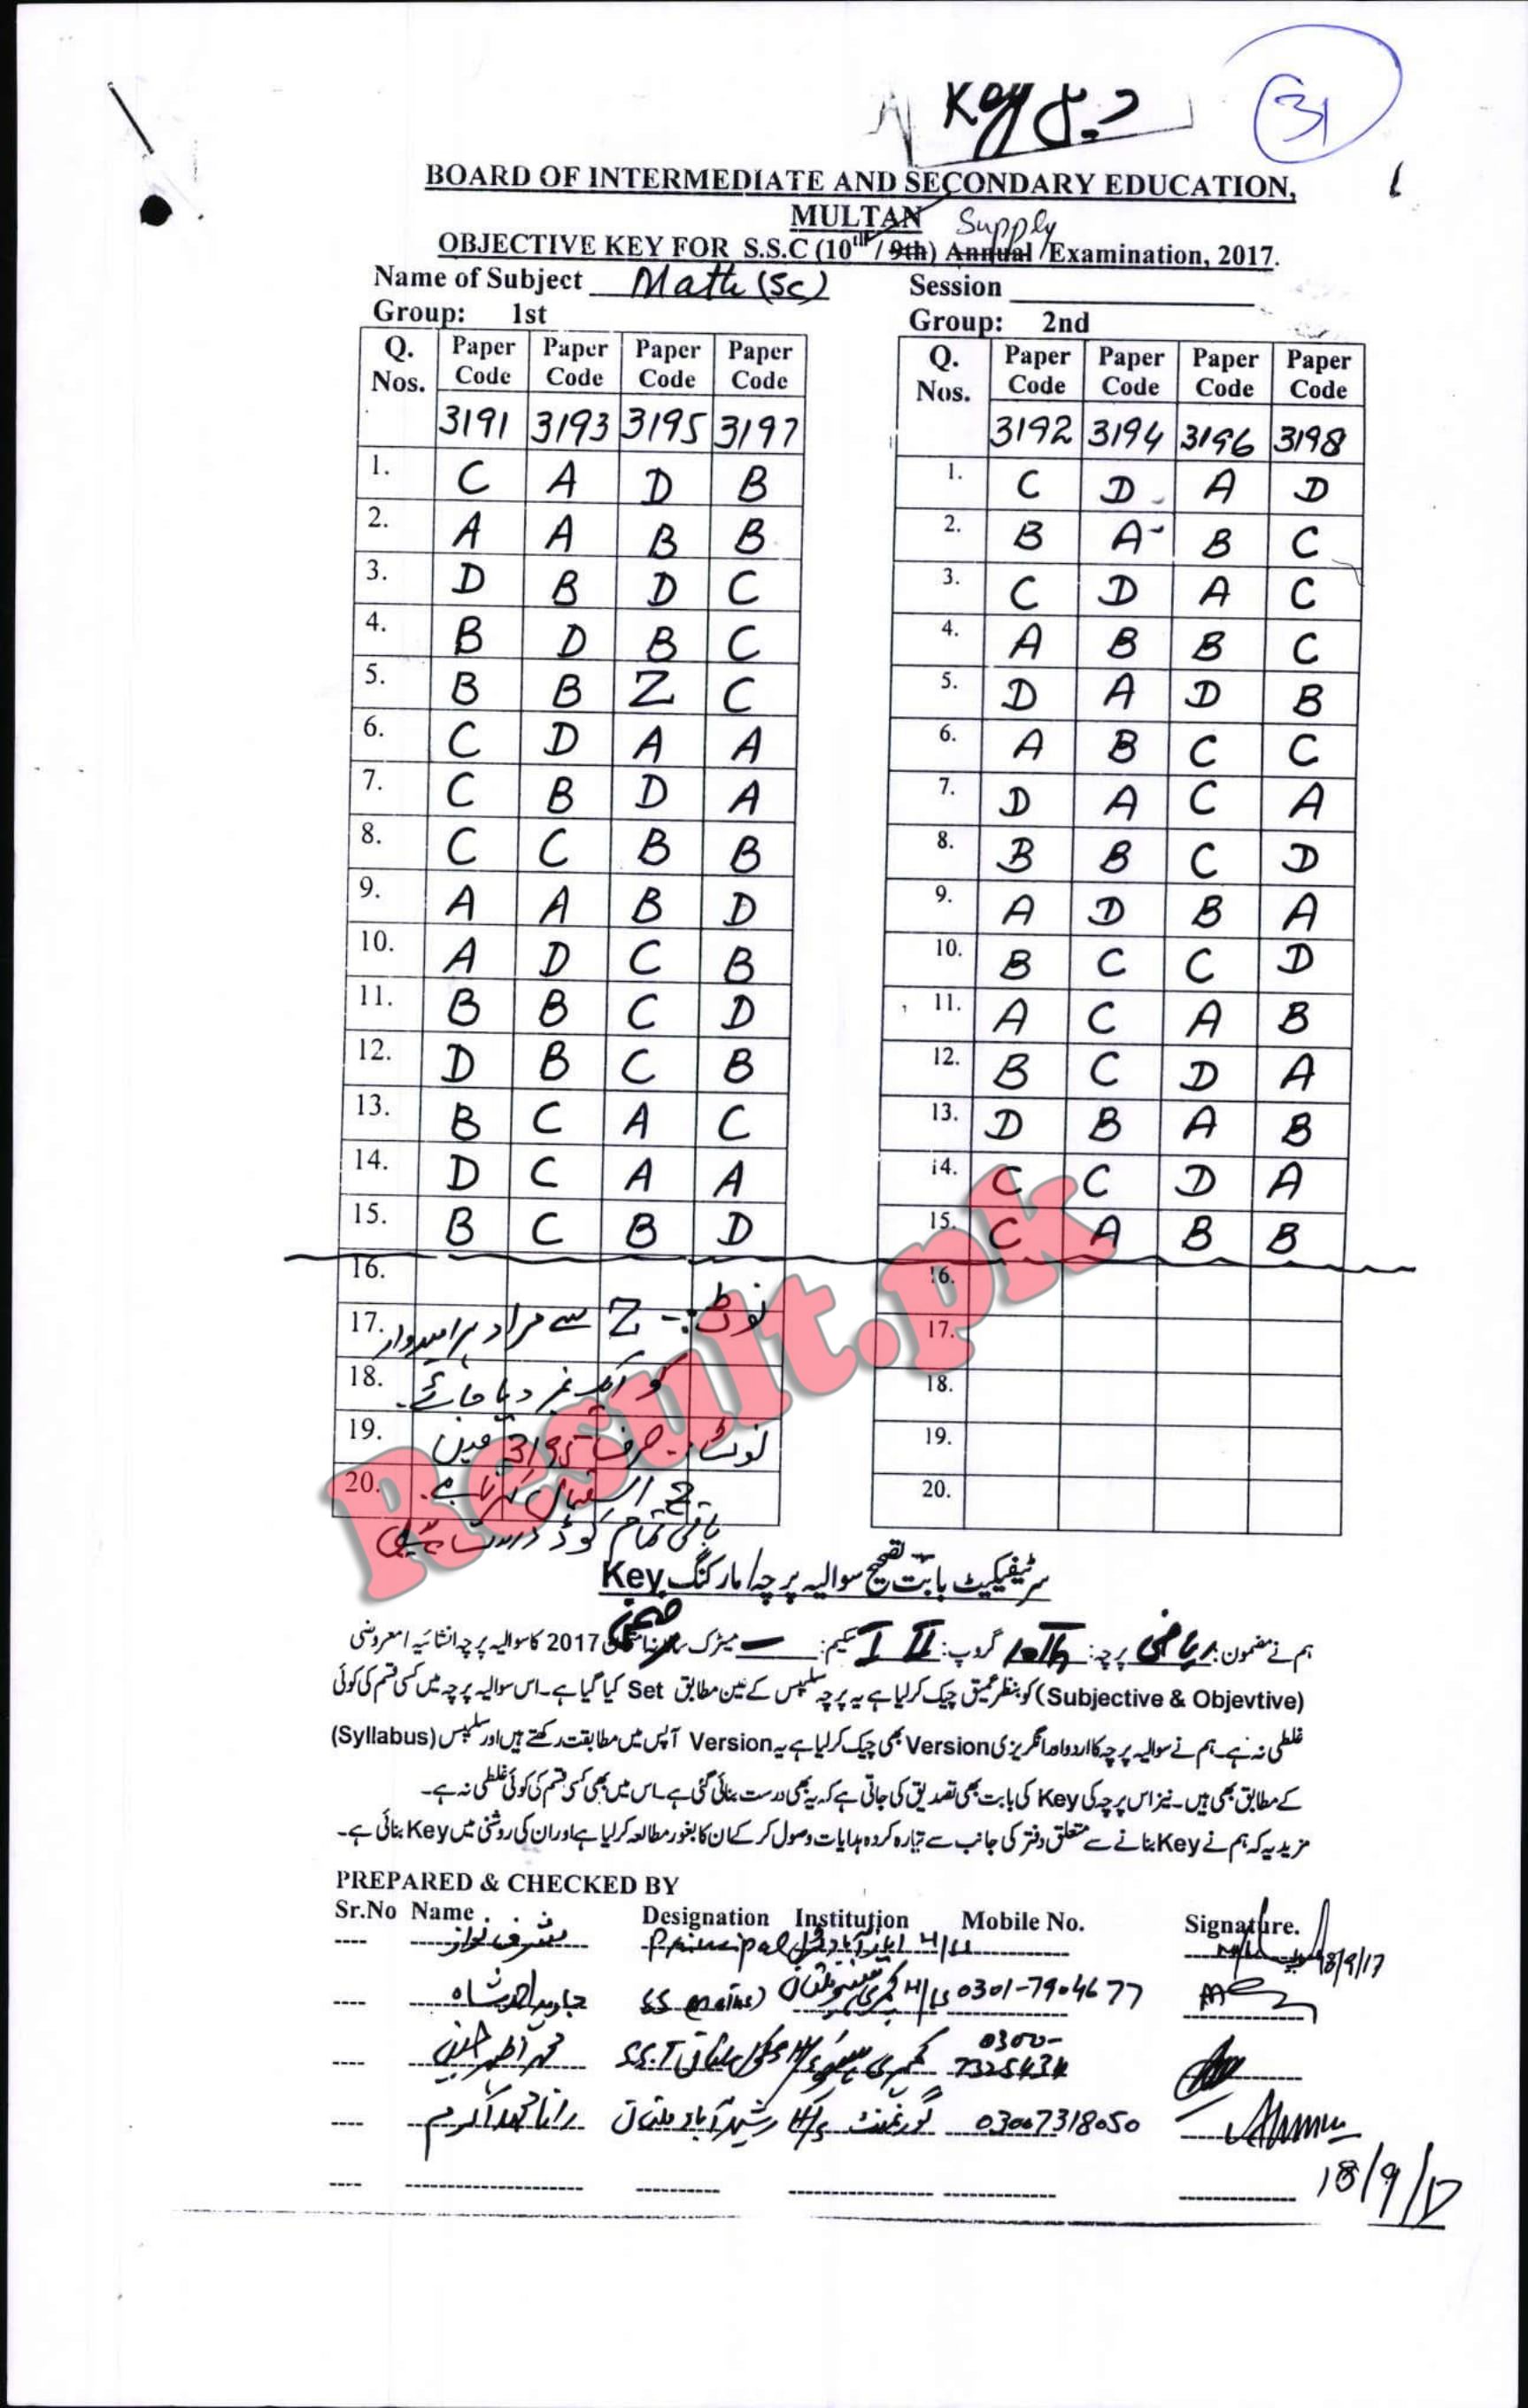 Key
31
BOARD OF INTERMEDIATE AND SECONDARY EDUCATION,
MULTAN
Supply
OBJECTIVE KEY FOR S.S.C (10TH / 9th) Annual /Examination, 2017.
Name of Subject Math (Sc) Session
Group: 1st Group: 2nd
Q. Nos. Paper Code Paper Code Paper Code Paper Code Q. Nos. Paper Code Paper Code Paper Code Paper Code
3191 3193 3195 3197 3192 3194 3196 3198
1. C A D B 1. C D A D
2. A A B B 2. B A B C
3. D B D C 3. C D A C
4. B D B C 4. A B B C
5. B B Z C 5. D A D B
6. C D A A 6. A B C C
7. C B D A 7. D A C A
8. C C B B 8. B B C D
9. A A B D 9. A D B A
10. A D C B 10. B C C D
11. B B C D 11. A C A B
12. D B C B 12. B C D A
13. B C A C 13. D B A B
14. D C A A 14. C C D A
15. B C B D 15. C A B B
16. 16.
17. نوٹ:- Z سے مراد ہر امیدوار 17.
18. کو ایک نمبر دیا جائے۔ 18.
19. نوٹ:- صرف 3195 میں 19.
20. Z استعمال کرنا ہے۔ 20.
باقی تمام کوڈ درست
Result.pk
سرٹیفکیٹ بابت تصحیح سوالیہ پرچہ/مارکنگ Key
ہم نے مضمون: ریاضی پرچہ: 10th گروپ: I II سکیم: — میٹرک ضمنی 2017 کا سوالیہ پرچہ انشائیہ / معروضی
(Subjective & Objevtive) کو بنظر عمیق چیک کرلیا ہے یہ پرچہ سلیبس کے عین مطابق Set کیا گیا ہے۔ اس سوالیہ پرچہ میں کسی قسم کی کوئی
غلطی نہ ہے۔ ہم نے سوالیہ پرچہ کا اردو اور انگریزی Version بھی چیک کرلیا ہے یہ Version آپس میں مطابقت رکھتے ہیں اور سلیبس (Syllabus)
کے مطابق بھی ہیں۔ نیز اس پرچہ کی Key کی بابت بھی تصدیق کی جاتی ہے کہ یہ بھی درست بنائی گئی ہے۔ اس میں بھی کسی قسم کی کوئی غلطی نہ ہے۔
مزید یہ کہ ہم نے Key بنانے سے متعلق دفتر کی جانب سے تیار کردہ ہدایات وصول کر کے ان کا بغور مطالعہ کرلیا ہے اور ان کی روشنی میں Key بنائی ہے۔
PREPARED & CHECKED BY
Sr.No Name Designation Institution Mobile No. Signature.
Principal 18/9/17
SS (Maths) 0301-7904677
S.S.T 0300-7325434
رانا محمد اکرم گورنمنٹ رشید آباد ملتان 03007318050
18/9/17